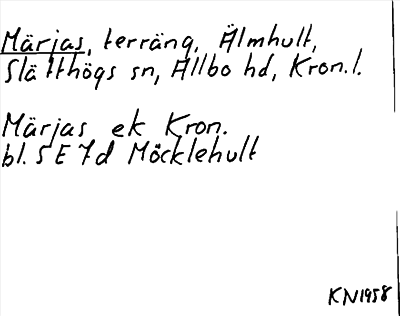 Märjas, terräng, Älmhult,
Slätthögs sn, Allbo hd, Kron. l.
Märjas ek Kron.
bl. 5 E 7d Möcklehult
KN1958